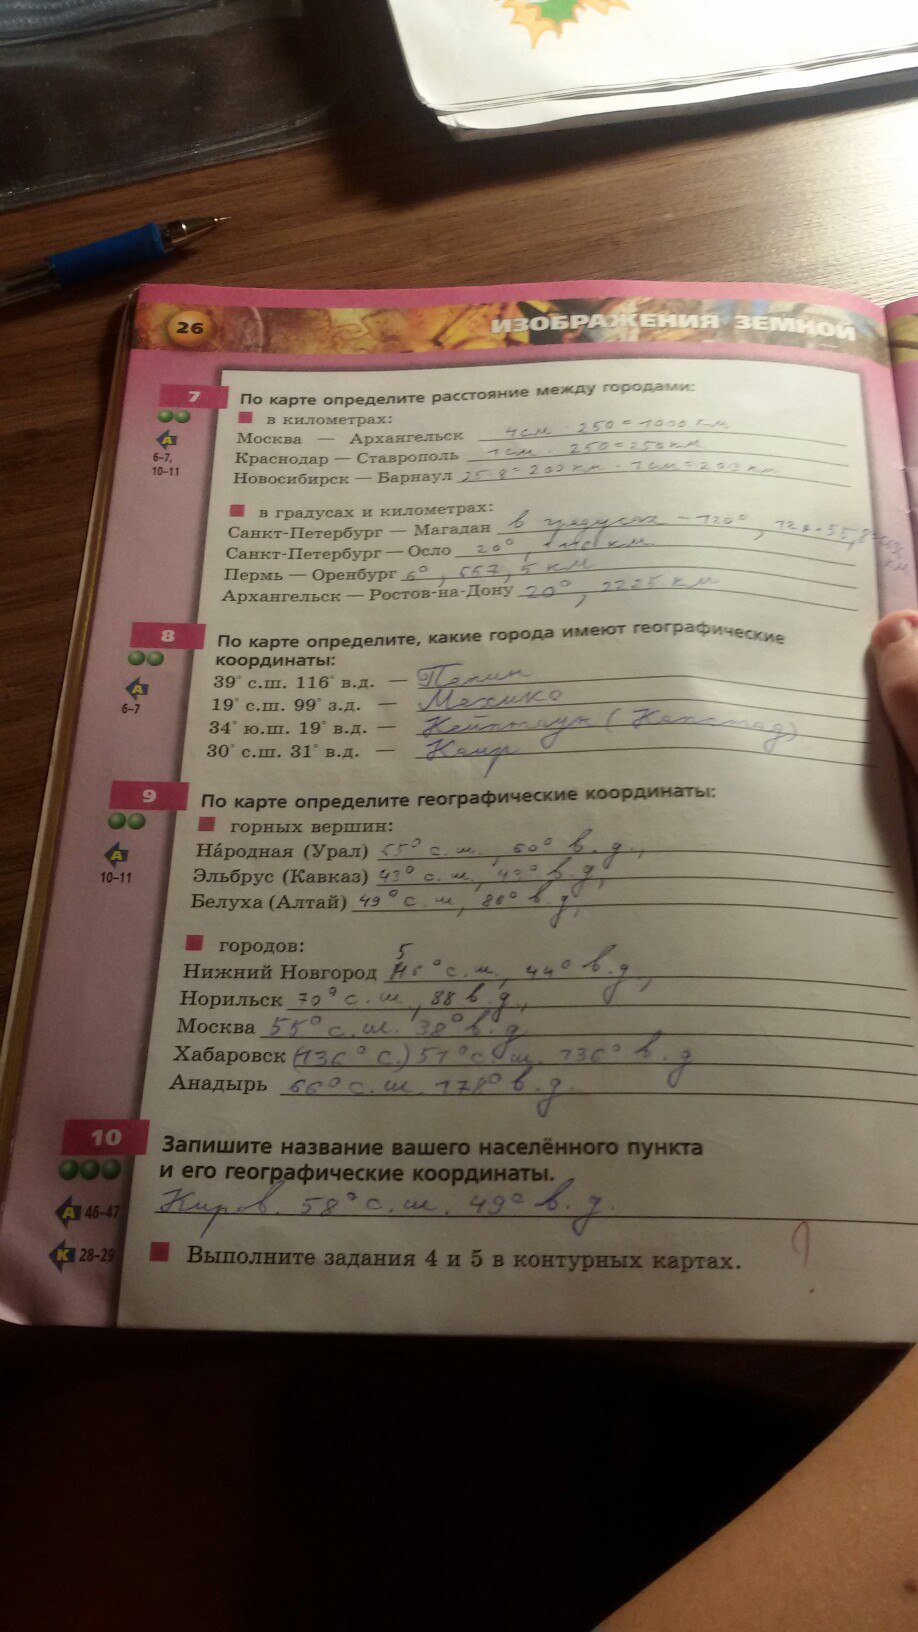 26
ИЗОБРАЖЕНИЯ ЗЕМНОЙ
7
По карте определите расстояние между городами:
в километрах:
А
6–7,
10–11
Москва — Архангельск 4 см · 250 = 1000 км
Краснодар — Ставрополь 1 см · 250 = 250 км
Новосибирск — Барнаул 200 км · 1 см = 200 км
в градусах и километрах:
Санкт-Петербург — Магадан в градусах – 120°,
Санкт-Петербург — Осло 20°, км
Пермь — Оренбург 6°, 667,5 км
Архангельск — Ростов-на-Дону 20°, 2225 км
8
По карте определите, какие города имеют географические
координаты:
А
6–7
39° с.ш. 116° в.д. — Пекин
19° с.ш. 99° з.д. — Мехико
34° ю.ш. 19° в.д. — Кейптаун (Капстад)
30° с.ш. 31° в.д. — Каир
9
По карте определите географические координаты:
А
10–11
горных вершин:
На́родная (Урал) с.ш., 60° в.д.,
Эльбрус (Кавказ) 43° с.ш, 43° в.д,
Белуха (Алтай) 49° с.ш, 86° в.д,
городов:
Нижний Новгород 56° с.ш., 44° в.д,
Норильск 70° с.ш., 88 в.д,
Москва 55° с.ш. 38° в.д
Хабаровск (136° с.) 51° с.ш. 136° в.д
Анадырь 66° с.ш. 178° в.д.
10
Запишите название вашего населённого пункта
и его географические координаты.
А 46–47
Киров. 58° с.ш. 49° в.д.
К 28–29
Выполните задания 4 и 5 в контурных картах.